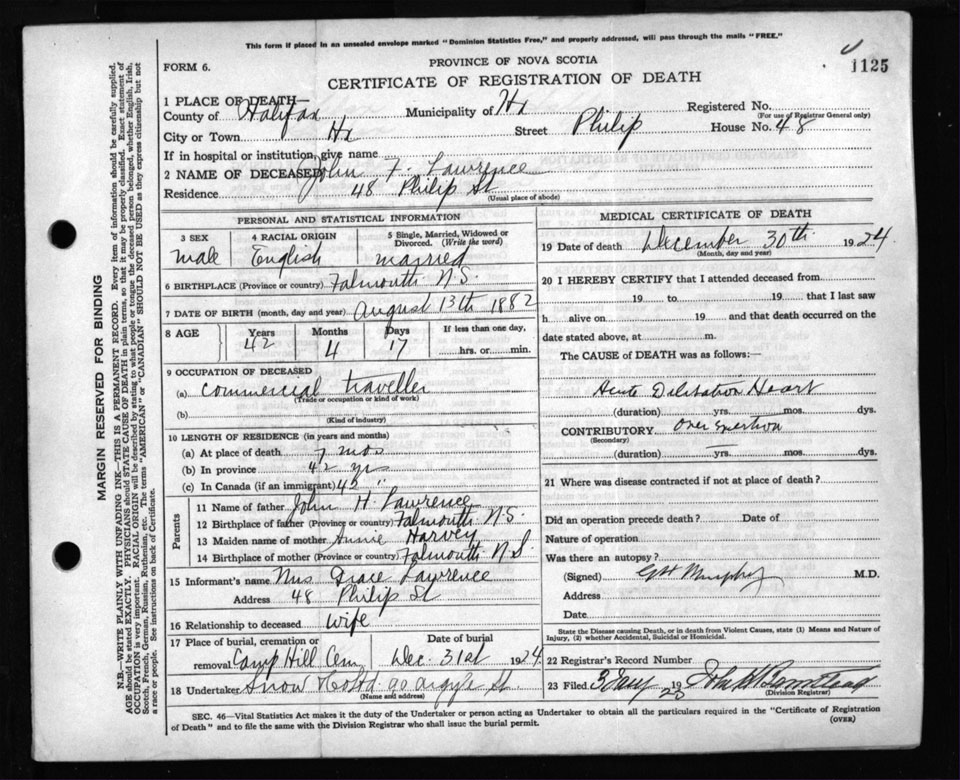 This form if placed in an unsealed envelope marked "Dominion Statistics Free," and properly addressed, will pass through the mails "FREE."
FORM 6.
PROVINCE OF NOVA SCOTIA
1125
CERTIFICATE OF REGISTRATION OF DEATH
1 PLACE OF DEATH—
County of Halifax Municipality of Hx Registered No.
(For use of Registrar General only)
City or Town Hx Street Philip House No. 48
If in hospital or institution, give name
2 NAME OF DECEASED John F. Lawrence
Residence 48 Philip St
(Usual place of abode)
PERSONAL AND STATISTICAL INFORMATION
3 SEX 4 RACIAL ORIGIN 5 Single, Married, Widowed or Divorced. (Write the word)
Male English Married
6 BIRTHPLACE (Province or country) Falmouth N.S.
7 DATE OF BIRTH (month, day and year) August 13th 1882
8 AGE Years Months Days If less than one day,
42 4 17 hrs. or min.
9 OCCUPATION OF DECEASED
(a) Commercial traveller
(Trade or occupation or kind of work)
(b)
(Kind of industry)
10 LENGTH OF RESIDENCE (in years and months)
(a) At place of death 7 mos
(b) In province 42 yrs
(c) In Canada (if an immigrant) 42 "
Parents
11 Name of father John H. Lawrence
12 Birthplace of father (Province or country) Falmouth N.S.
13 Maiden name of mother Annie Harvey
14 Birthplace of mother (Province or country) Falmouth N.S.
15 Informant's name Mrs Grace Lawrence
Address 48 Philip St
16 Relationship to deceased wife
17 Place of burial, cremation or removal Camp Hill Cem Date of burial Dec. 31st 1924
18 Undertaker Snow 90 Argyle St
(Name and address)
MEDICAL CERTIFICATE OF DEATH
19 Date of death December 30th 1924
(Month, day and year)
20 I HEREBY CERTIFY that I attended deceased from
19 to 19 that I last saw
h alive on 19 and that death occurred on the
date stated above, at m.
The CAUSE of DEATH was as follows:—
Acute Dilatation Heart
(duration) yrs. mos. dys.
CONTRIBUTORY Over exertion
(Secondary)
(duration) yrs. mos. dys.
21 Where was disease contracted if not at place of death?
Did an operation precede death? Date of
Nature of operation
Was there an autopsy?
(Signed) Murphy M.D.
Address
Date
State the Disease causing Death, or in death from Violent Causes, state (1) Means and Nature of Injury, (2) whether Accidental, Suicidal or Homicidal.
22 Registrar's Record Number
23 Filed 3 Jany 1925 John
(Division Registrar)
SEC. 46—Vital Statistics Act makes it the duty of the Undertaker or person acting as Undertaker to obtain all the particulars required in the "Certificate of Registration
of Death" and to file the same with the Division Registrar who shall issue the burial permit.
(OVER)
MARGIN RESERVED FOR BINDING
N.B.—WRITE PLAINLY WITH UNFADING INK—THIS IS A PERMANENT RECORD. Every item of information should be carefully supplied.
AGE should be stated EXACTLY. PHYSICIANS should STATE CAUSE OF DEATH in plain terms, so that it may be properly classified. Exact statement of
OCCUPATION is very important. RACIAL ORIGIN will be described by stating to what people or tongue the deceased person belonged, whether English, Irish,
Scotch, French, German, Russian, Ruthenian, etc. The terms "AMERICAN" or "CANADIAN" SHOULD NOT BE USED as they express citizenship but not
a race or people. See instructions on back of Certificate.